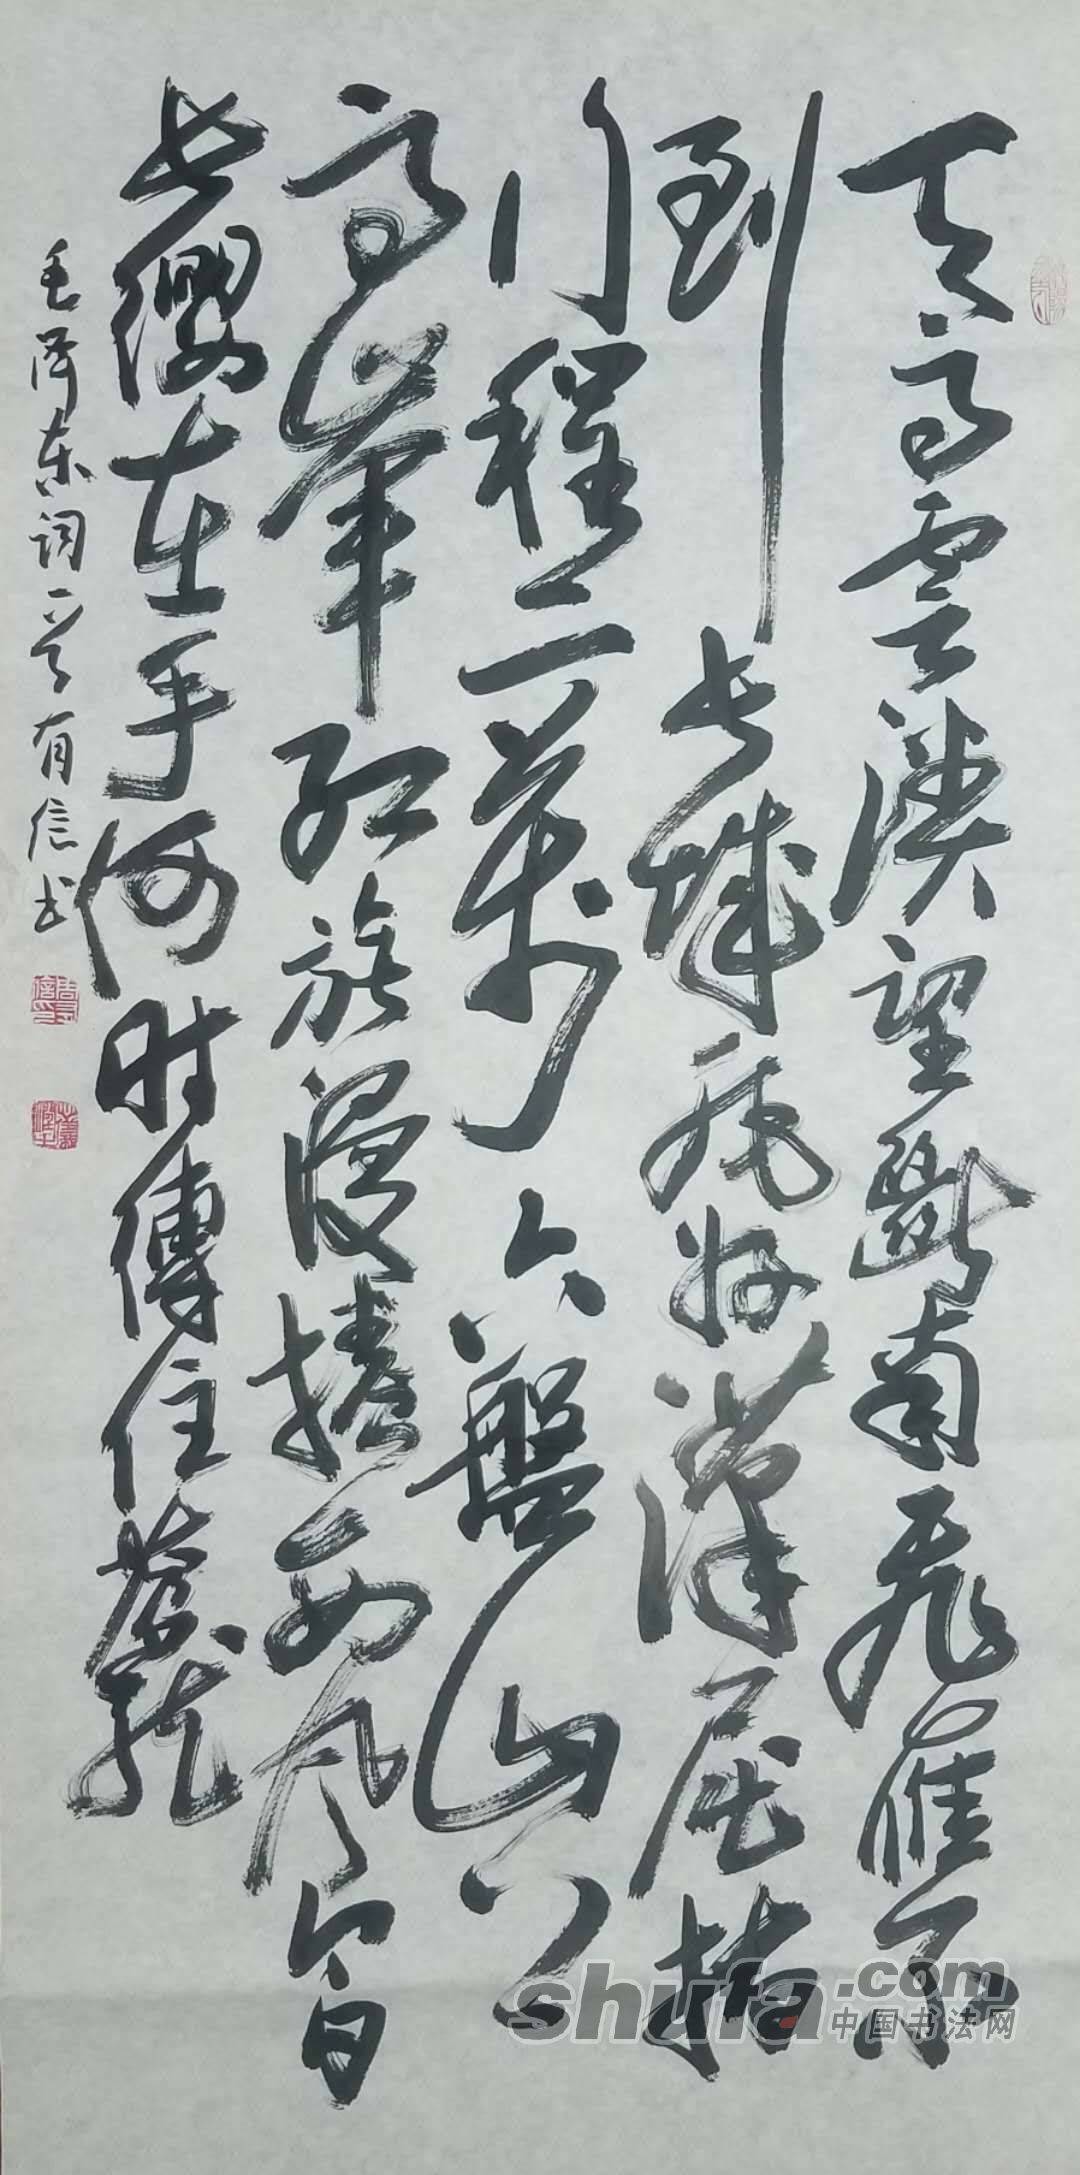 天高雲淡望斷南飛雁不
到长城非好漢屈指
行程二萬六盤山上
高峯红旗漫捲西风今日
长纓在手何时縛住蒼龍
毛泽东词一首有信书
shufa.com
中国书法网